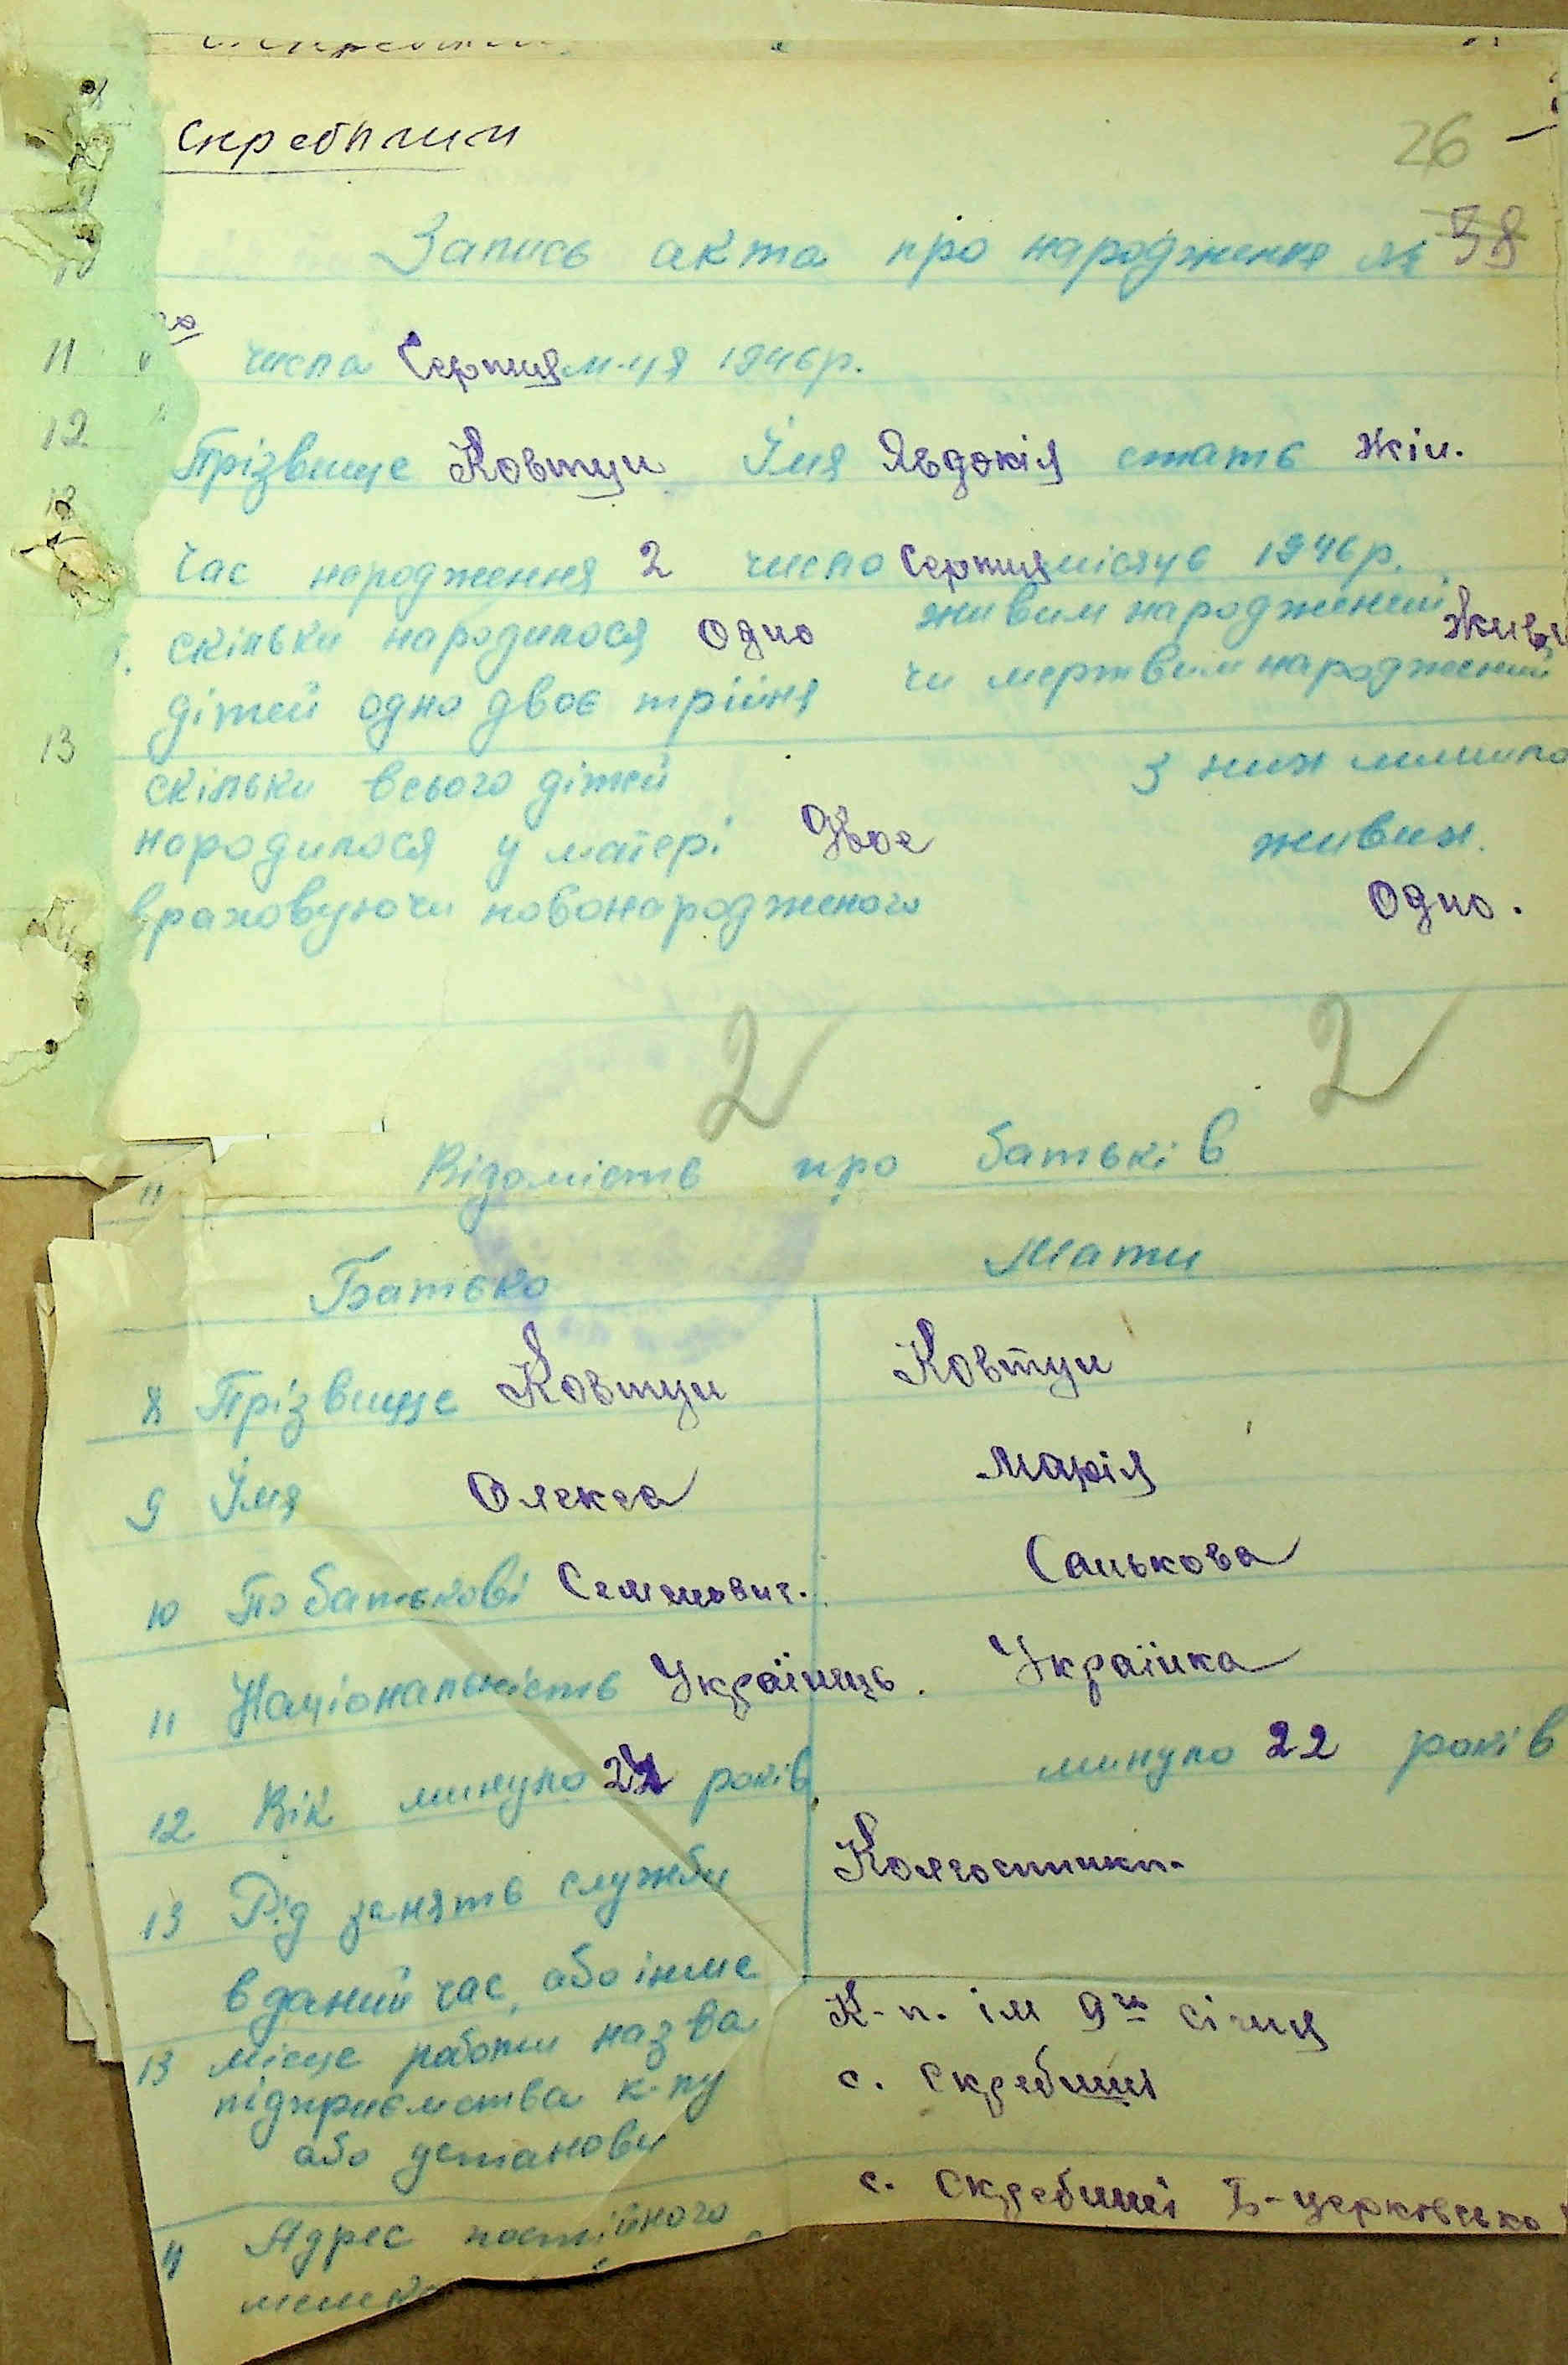 Скребиши
26
Запись акта про народження № 38
11 числа Серпня м-ця 1946 р.
12 Прізвище Ковтун Імя Явдокія стать жін.
Час народження 2 число серпня місяць 1946 р.
скільки народилося одно живим народжений
дітей одно двоє трійня чи мертвим народжений
13
скільки всього дітей З них лишило
народилося у матері двоє живих.
враховуючи новонародженого Одно.
2 2
Відомість про батьків
Батько Мати
8 Прізвище Ковтун Ковтун
9 Імя Олекса Марія
10 По батькові Семенович. Санькова
11 Національність Українець. Українка
12 Вік минуло років минуло 22 років
13 Рід занять служби
в даний час, або інше
13 місце роботи назва К-п. ім 9го січня
підприємства к-пу с. Скребиші
або установи
Адрес постійного с. Скребиші Б-церковсько